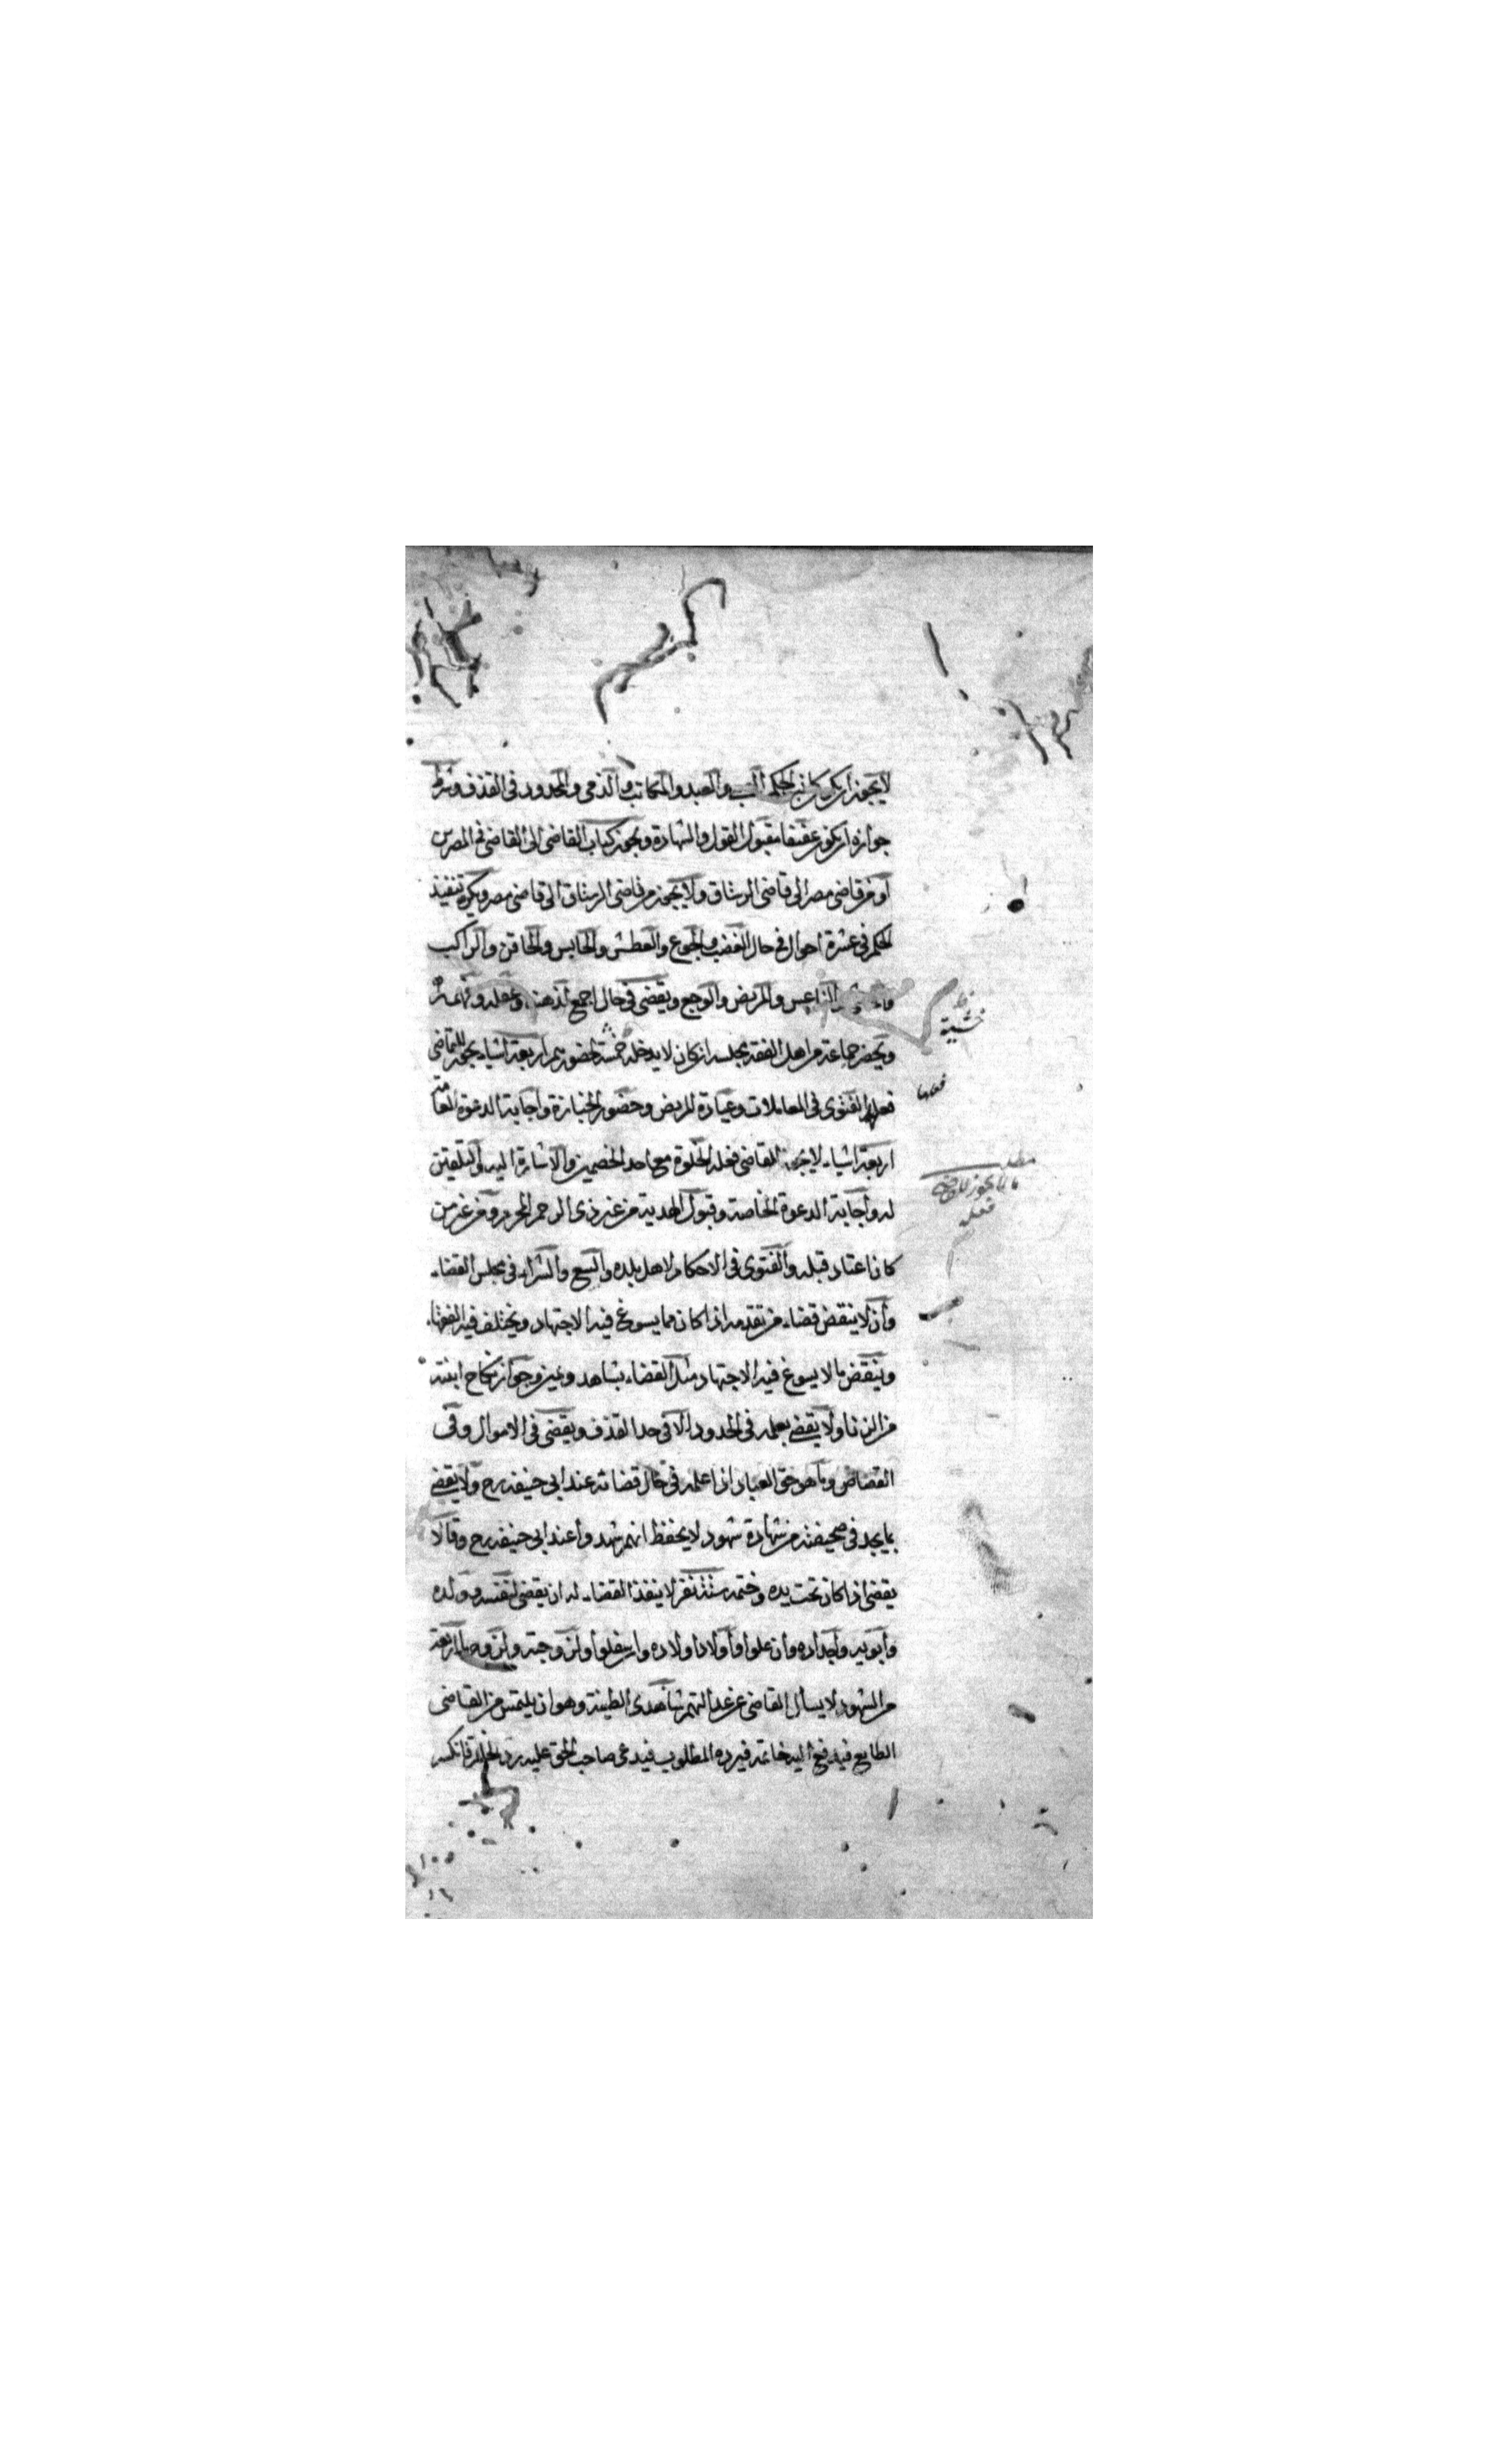 لا يجوز ان يكون كاتب الحكم الصبي والعبد والمكاتب والذمي والمحدود في القذف وشرط
جوازه ان يكون عفيفا مقبول القول والشهادة ويجوز كتاب القاضي الى القاضي في المصرين
او من قاضي مصر الى قاضي الرستاق ولا يجوز من قاضي الرستاق الى قاضي مصر ويكره تنفيذ
الحكم في عشرة احوال في حال الغضب والجوع والعطش والحابس والحاقن والراكب
الناعس والمريض والوجع ويقضي في حال اجمع لذهنه وعقله وفهمه
ويحضر جماعة من اهل الفقه مجلسه ان كان لا يدخله خشية لحضورهم اربعة اشياء يجوز للقاضي
فعلها الفتوى في المعاملات وعيادة المريض وحضور الجنازة واجابة الدعوة العامة
اربعة اشياء لا يجوز للقاضي فعله الخلوة مع احد الخصمين والاشارة اليه والتلقين
له واجابة الدعوة الخاصة وقبول الهدية من غير ذي الرحم المحرم ومن غير من
كان اعتاد قبله والفتوى في الاحكام لاهل بلده والبيع والشراء في مجلس القضاء
وان لا ينقض قضاء من تقدمه اذا كان مما يسوغ فيه الاجتهاد ويختلف فيه الفقهاء
وينقض ما لا يسوغ فيه الاجتهاد مثل القضاء بشاهد ويمين وجواز نكاح ابنته
من الزنا ولا يقضي بعلمه في الحدود الا في حد القذف ويقضي في الاموال وفي
القصاص وما هو حق العباد اذا علمه في حال قضائه عند ابي حنيفة رح ولا يقضي
بما يجد في صحيفته من شهادة شهود لا يحفظ انهم شهدوا عند ابي حنيفة رح وقالا
يقضي اذا كان تحت يده وختمه ستة نفر لا ينفذ القضاء له ان يقضي لنفسه وولده
وابويه واجداده وان علوا واولاد اولاده وان سفلوا ولزوجته ولزوجها اربعة
من الشهود لا يسأل القاضي عن عدالتهم شاهدي الطينة وهو ان يلتمس من القاضي
الطابع فيدفع اليه خاتمه فيرده المطلوب فيدعى صاحب الحق عليه رد الخاتم فانكسر
خشية
فعلها
مطلب
ما لا يجوز للقاضي
فعله